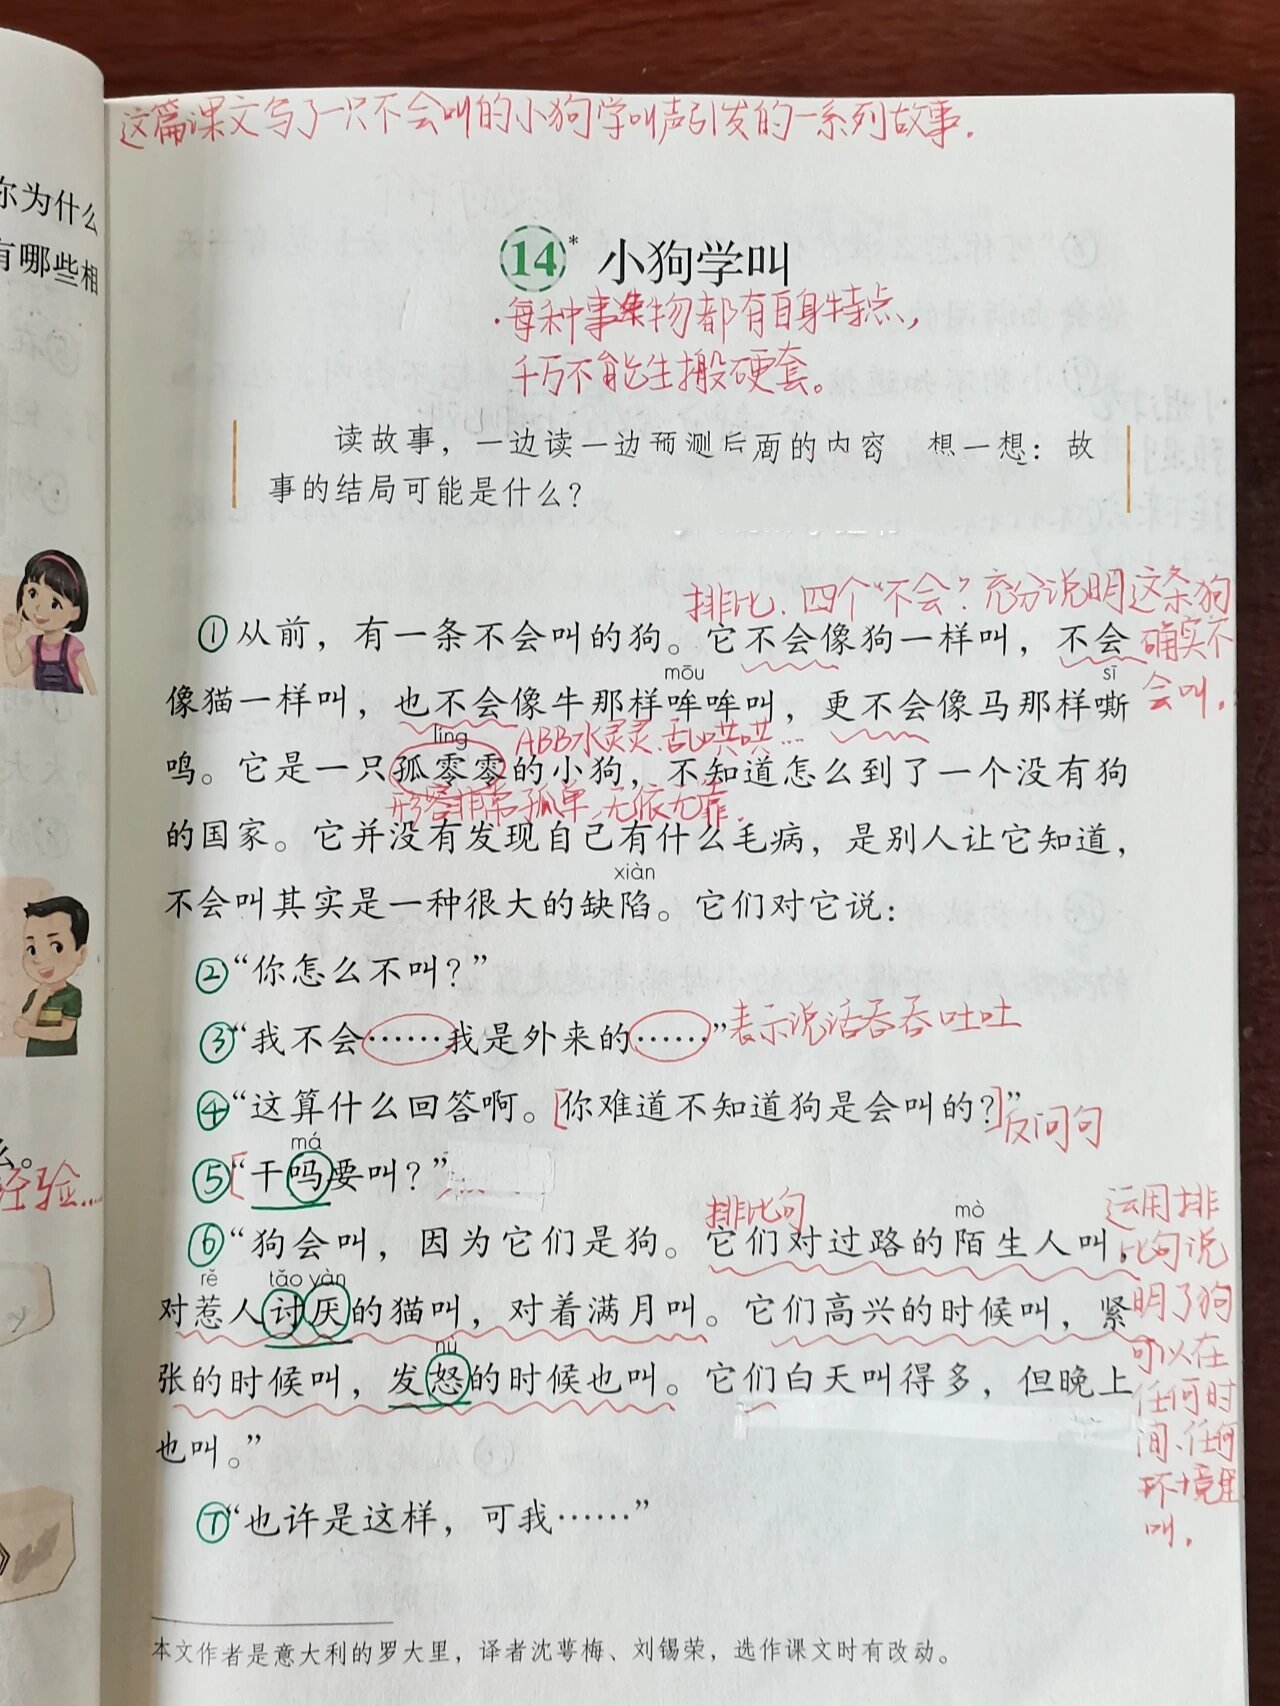 这篇课文写了一只不会叫的小狗学叫声引发的一系列故事.
你为什么
有哪些相
14* 小狗学叫
·每种事物都有自身特点,
千万不能生搬硬套。
读故事，一边读一边预测后面的内容 想一想：故
事的结局可能是什么？
排比、四个“不会”充分说明这条狗
确实不
会叫.
①从前，有一条不会叫的狗。它不会像狗一样叫，不会
mōu sī
像猫一样叫，也不会像牛那样哞哞叫，更不会像马那样嘶
líng ABB水灵灵、乱哄哄…
鸣。它是一只孤零零的小狗，不知道怎么到了一个没有狗
形容非常孤单,无依无靠.
的国家。它并没有发现自己有什么毛病，是别人让它知道，
xiàn
不会叫其实是一种很大的缺陷。它们对它说：
②“你怎么不叫？”
③“我不会……我是外来的……” 表示说话吞吞吐吐
④“这算什么回答啊。[你难道不知道狗是会叫的？]” 反问句
má
⑤“[干吗要叫？”
经验…
排比句
mò
⑥“狗会叫，因为它们是狗。它们对过路的陌生人叫，
rě tǎo yàn
对惹人讨厌的猫叫，对着满月叫。它们高兴的时候叫，紧
nù
张的时候叫，发怒的时候也叫。它们白天叫得多，但晚上
也叫。”
运用排
比句说
明了狗
可以在
任何时
间、任何
环境里
叫.
⑦“也许是这样，可我……”
本文作者是意大利的罗大里，译者沈萼梅、刘锡荣，选作课文时有改动。